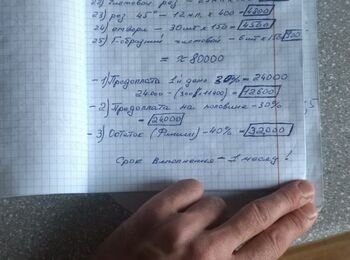 22) Чистовой рез -
23) рез 45° - 12 м.п. x 400 = 4800
24) отверст - 30 шт x 150 = 4500
25) Г-образный чистовой - 6 шт x 150 900
= ≈ 80000
-1) Предоплата 1й день 30% = 24000
24.000 - = 12600
-2) Предоплата на половине - 30%
= 24000
-3) Остаток (Финиш) - 40% = 32000
Срок выполнения - 1 месяц!